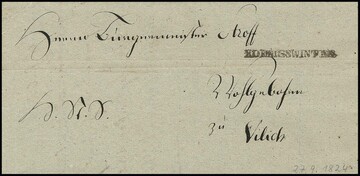 Herrn Burgermeister Aroff
KOENIGSWINTER
Wohlgebohren
H. N. S.
zu
Vilich
27.9.1824